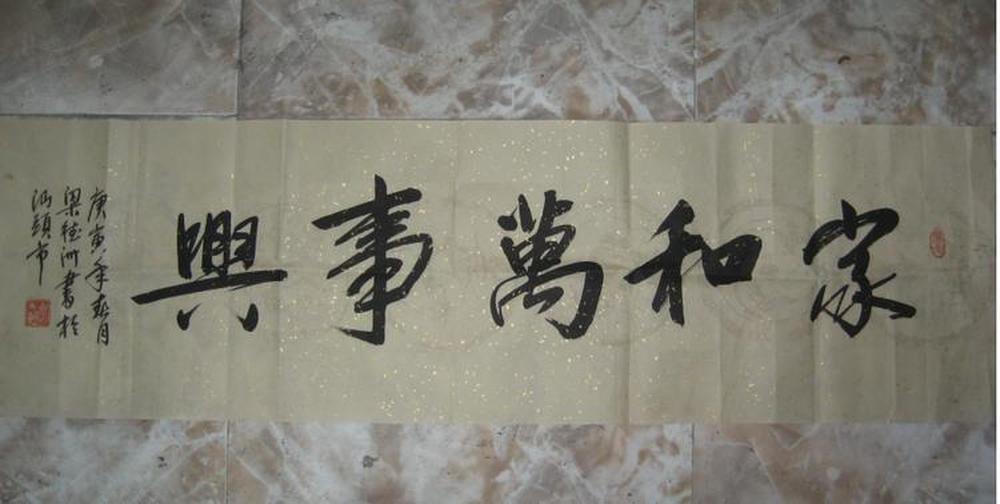 家和萬事興
庚寅年春月
梁德洲書於
汕頭市